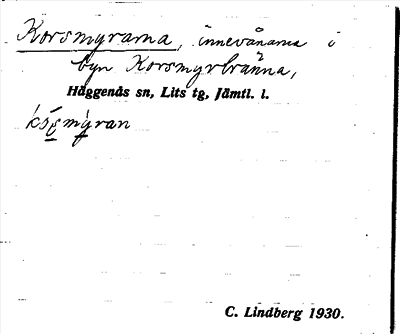 Korsmyrarna, innevånarna i
byn Korsmyrbränna,
Häggenås sn, Lits tg, Jämtl. l.
C. Lindberg 1930.